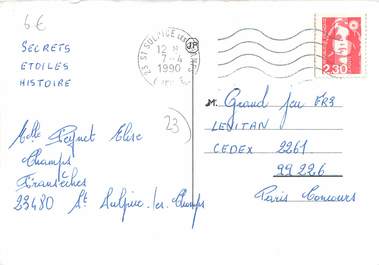 6€
SECRETS
ETOILES
HISTOIRE
23 ST SULPICE LES CHAMPS
12 H
7-4
1990
JP
2,30
M. Grand jeu FR3
LEVITAN
CEDEX 2261
99226
Paris Concours
23
Melle Peynet Elise
Champs
Fransèches
23480 St Sulpice les Champs